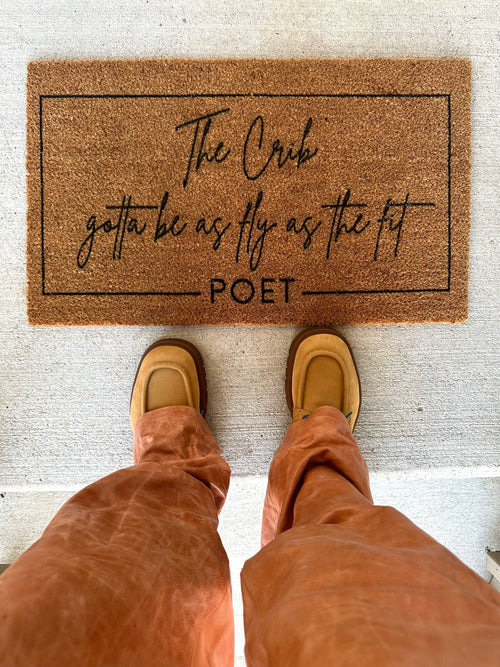 The Crib
gotta be as fly as the fit
POET